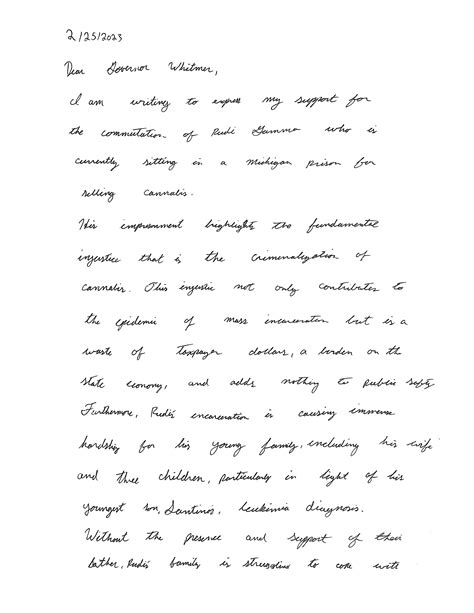 2/25/2023
Dear Governor Whitmer,
I am writing to express my support for
the commutation of Rudi Gammo who is
currently sitting in a Michigan prison for
selling cannabis.
His imprisonment highlights the fundamental
injustice that is the criminalization of
cannabis. This injustice not only contributes to
the epidemic of mass incarceration but is a
waste of taxpayer dollars, a burden on the
state economy, and adds nothing to public safety.
Furthermore, Rudi's incarceration is causing immense
hardship for his young family, including his wife
and three children, particularly in light of his
youngest son, Santino's, leukimia diagnosis.
Without the presence and support of their
father, Rudi's family is struggling to cope with